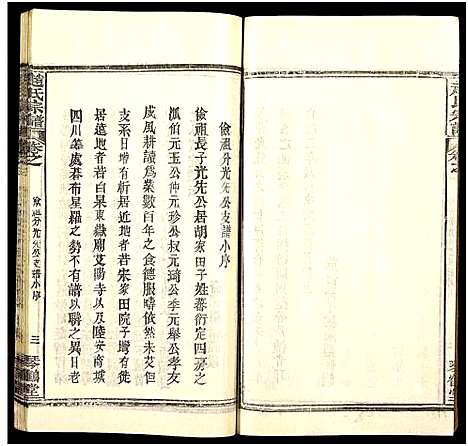 儉祖分光先公支譜小序
儉祖長子光先公居胡家田子姓蕃衍定四房之
派伯元玉公仲元珍公叔元琦公季元舉公孝友
成風耕讀為業數百年之食德服疇依然未艾但
支系日增有析居近地者若宋家田院子壪有徙
居遠地者若白杲東嶽廟艾陽寺以及陸安商城
四川等處碁布星羅之勢不有譜以聯之異日老
趙氏宗譜
卷之
儉祖分光先公支譜小序
三
琴鶴堂